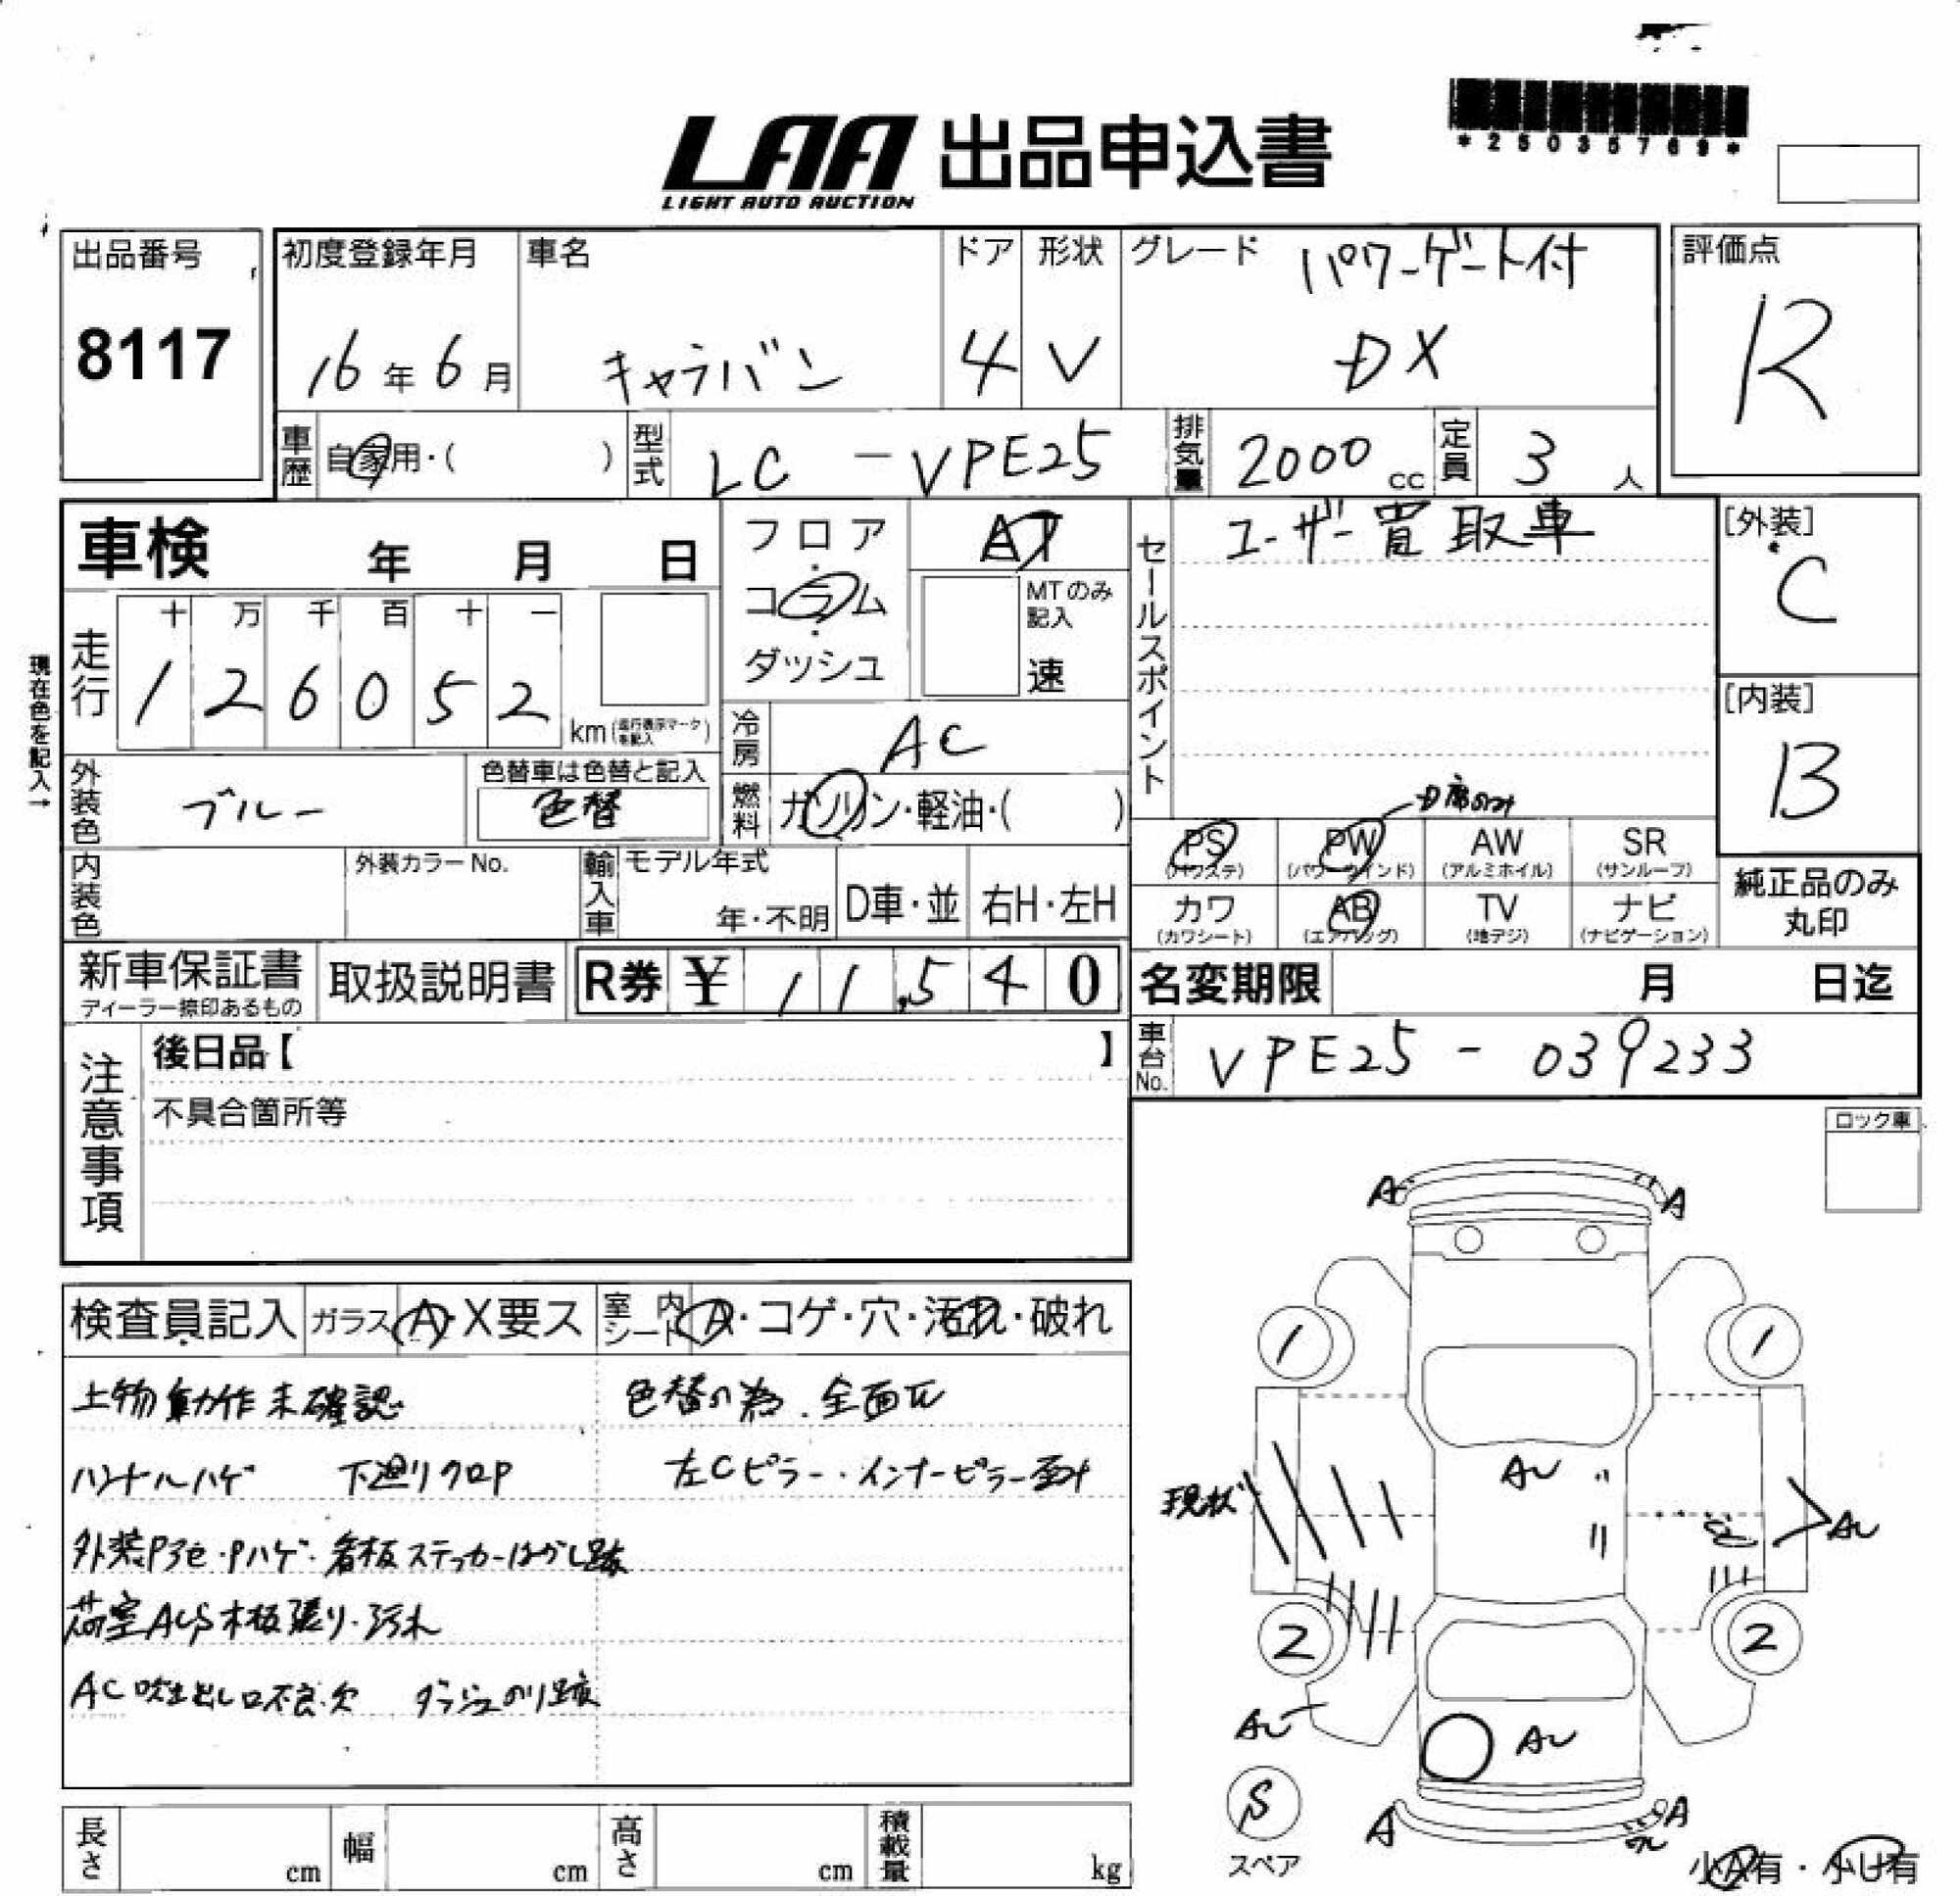 *25035769*
LAA 出品申込書
LIGHT AUTO AUCTION
出品番号
8117
初度登録年月
16年6月
車名
キャラバン
ドア
4
形状
V
グレード
パワーゲート付
DX
評価点
R
車歴
自家用・( )
型式
LC - VPE25
排気量
2000 cc
定員
3 人
車検 年 月 日
フロア
・
コラム
・
ダッシュ
AT
MTのみ
記入
速
セールスポイント
ユーザー買取車
[外装]
C
[内装]
B
現在色を記入→
走行
十 万 千 百 十 一
1 2 6 0 5 2
km (走行表示マークを記入)
冷房
AC
外装色
ブルー
色替車は色替と記入
色替
燃料
ガソリン・軽油・( )
D席のみ
PS
(パワステ)
PW
(パワーウインド)
AW
(アルミホイル)
SR
(サンルーフ)
カワ
(カワシート)
AB
(エアバッグ)
TV
(地デジ)
ナビ
(ナビゲーション)
純正品のみ
丸印
内装色
外装カラーNo.
輸入車
モデル年式
年・不明
D車・並
右H・左H
新車保証書
ディーラー捺印あるもの
取扱説明書
R券 ¥ 11,540
名変期限 月 日迄
車台No.
VPE25 - 039233
注意事項
後日品【 】
不具合箇所等
ロック車
検査員記入
ガラス
A・X要ス
室内シート
A・コゲ・穴・汚れ・破れ
上物動作未確認
色替の為、全面W
ハンドルハゲ 下廻りクロP
左Cピラー・インナーピラー
外装P3色・Pハゲ・看板ステッカーはがし跡
荷室 木板張り・汚れ
AC吹き出し口不良・欠 ダッシュのり跡
A
A
1
1
AU
現状
AU
2
2
AU
AU
S
スペア
A
A
小A有・小U有
長さ cm
幅 cm
高さ cm
積載量 kg